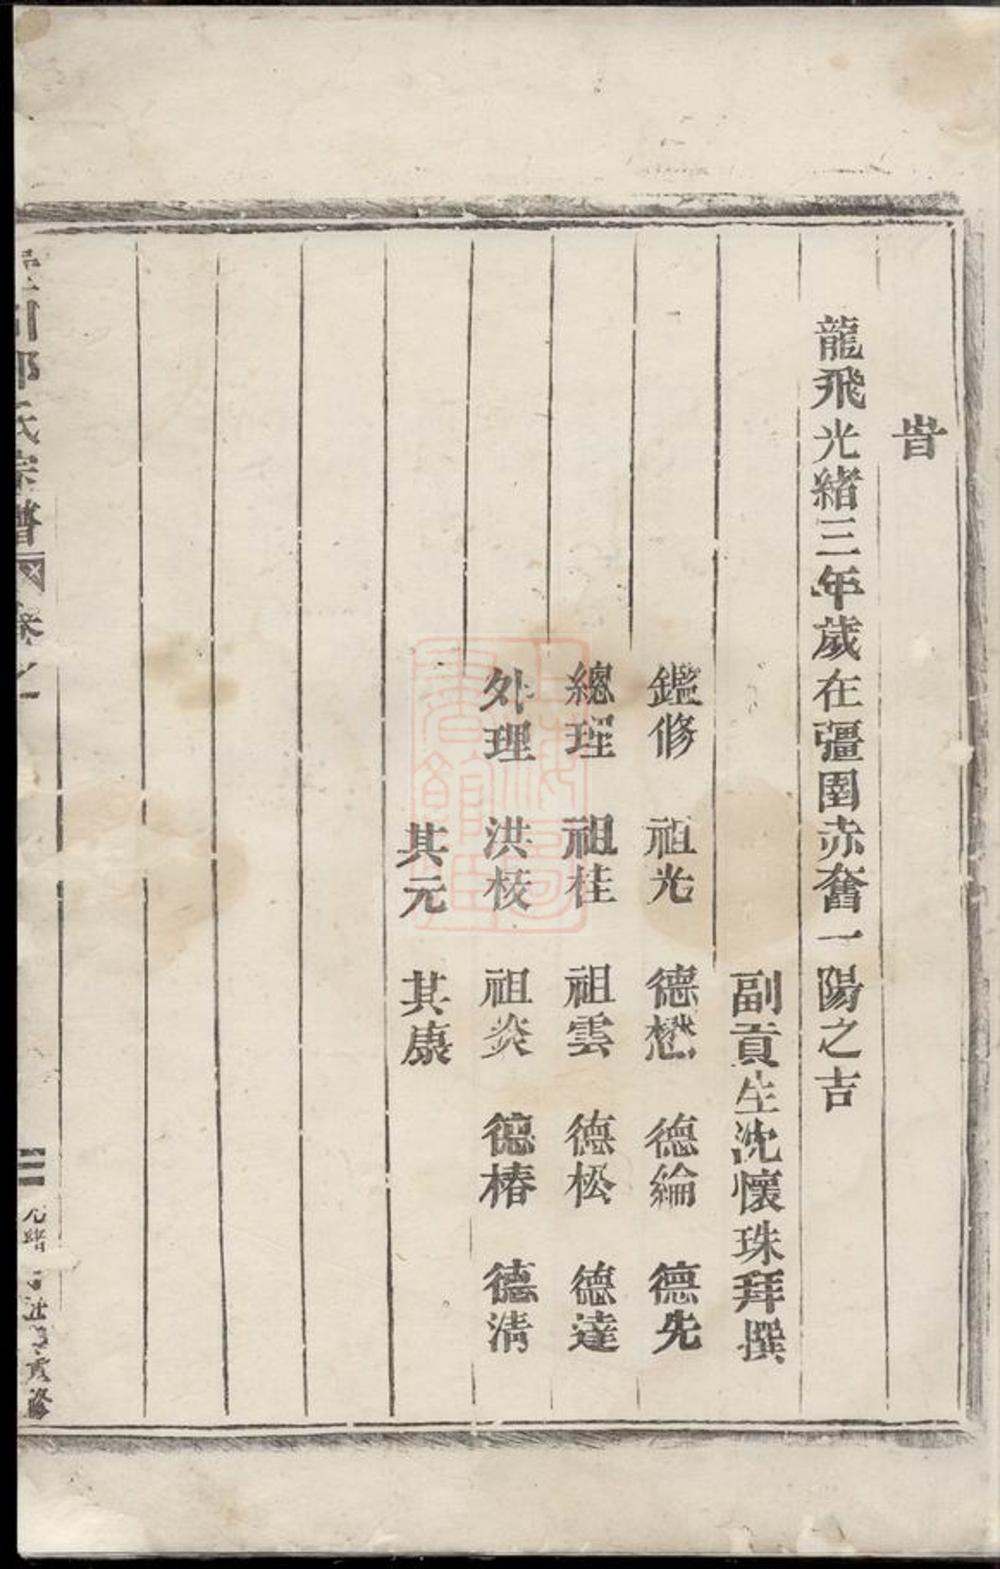 旹
龍飛光緒三年歲在彊圉赤奮一陽之吉
副貢生沈懷珠拜撰
鑑修 祖光 德懋 德綸 德先
總理 祖桂 祖雲 德松 德達
外理 洪枝 祖炎 德椿 德清
其元 其康
氏宗譜 卷之一
三 光緒 重修